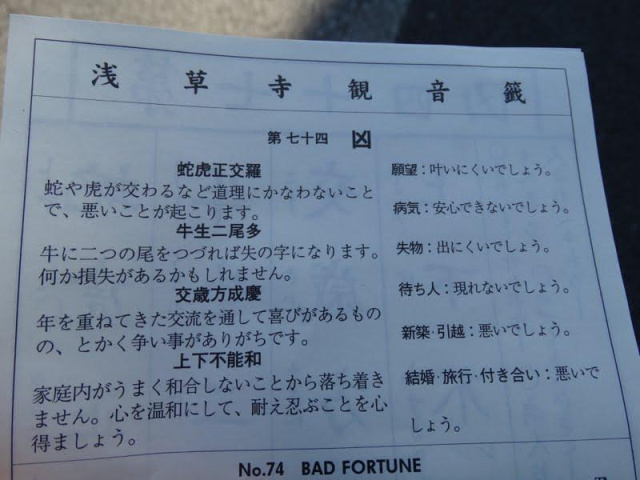 浅草寺観音籤
第七十四 凶
蛇虎正交羅
蛇や虎が交わるなど道理にかなわないこと
で、悪いことが起こります。
牛生二尾多
牛に二つの尾をつづれば失の字になります。
何か損失があるかもしれません。
交歳方成慶
年を重ねてきた交流を通して喜びがあるもの
の、とかく争い事がありがちです。
上下不能和
家庭内がうまく和合しないことから落ち着き
ません。心を温和にして、耐え忍ぶことを心
得ましょう。
願望：叶いにくいでしょう。
病気：安心できないでしょう。
失物：出にくいでしょう。
待ち人：現れないでしょう。
新築・引越：悪いでしょう。
結婚・旅行・付き合い：悪いで
しょう。
No.74 BAD FORTUNE